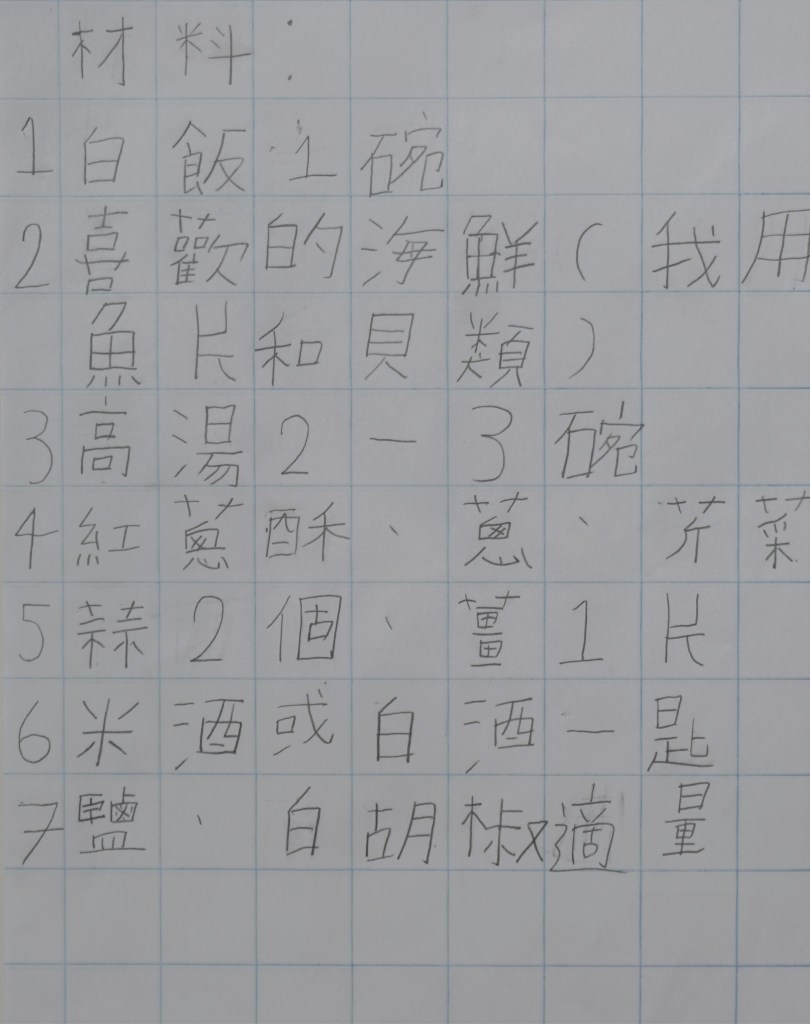 材料:
1白飯1碗
2喜歡的海鮮(我用
魚片和貝類)
3高湯2一3碗
4紅蔥酥、蔥、芹菜
5蒜2個、薑1片
6米酒或白酒一匙
7鹽、白胡椒適量